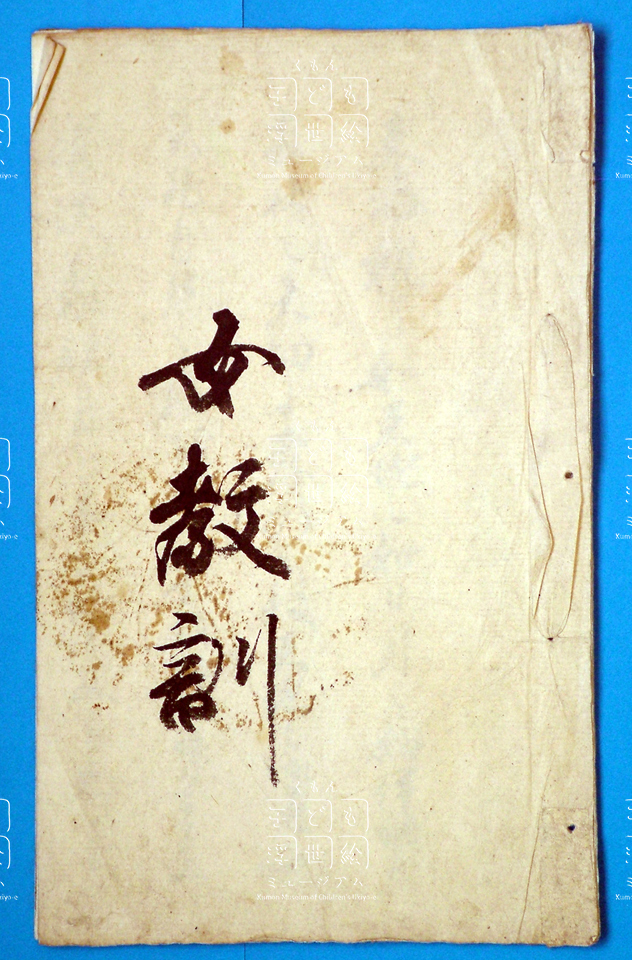 女教訓
くもん
子ども
浮世絵
ミュージアム
Kumon Museum of Children's Ukiyo-e
くもん
子ども
浮世絵
ミュージアム
Kumon Museum of Children's Ukiyo-e